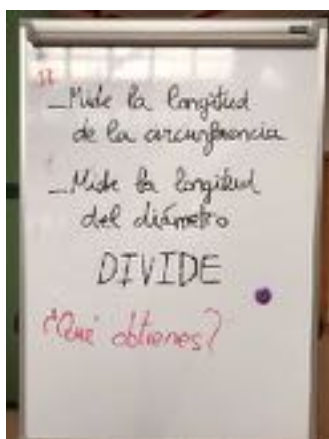 _Mide la longitud
de la circunferencia
_Mide la longitud
del diámetro
DIVIDE
¿Qué obtienes?